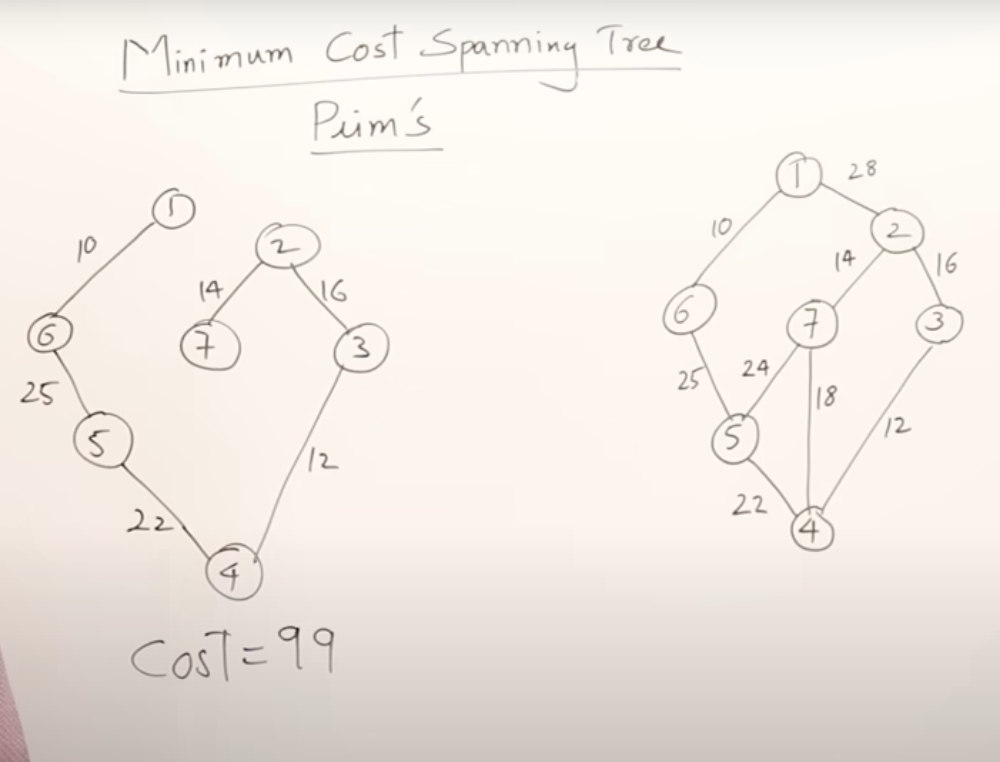 Minimum Cost Spanning Tree
Prim's
1
10
2
14
16
6
7
3
25
5
12
22
4
Cost = 99
1
28
10
2
14
16
6
7
3
25
24
18
5
12
22
4